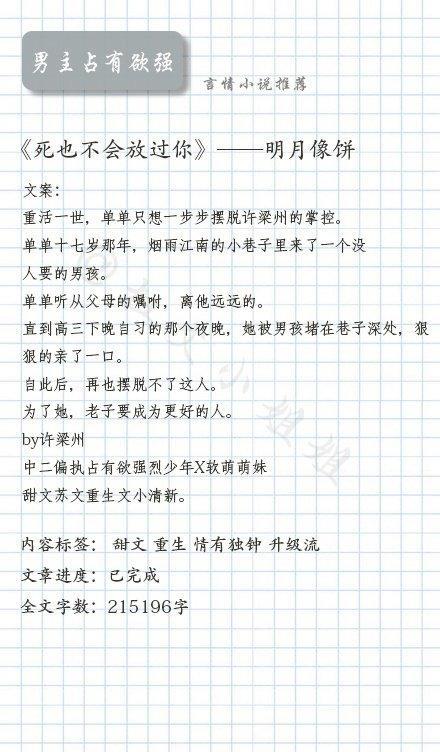 男主占有欲强
言情小说推荐
《死也不会放过你》——明月像饼
文案：
重活一世，单单只想一步步摆脱许梁州的掌控。
单单十七岁那年，烟雨江南的小巷子里来了一个没
人要的男孩。
单单听从父母的嘱咐，离他远远的。
直到高三下晚自习的那个夜晚，她被男孩堵在巷子深处，狠
狠的亲了一口。
自此后，再也摆脱不了这人。
为了她，老子要成为更好的人。
by许梁州
中二偏执占有欲强烈少年X软萌萌妹
甜文苏文重生文小清新。
内容标签： 甜文 重生 情有独钟 升级流
文章进度：已完成
全文字数：215196字